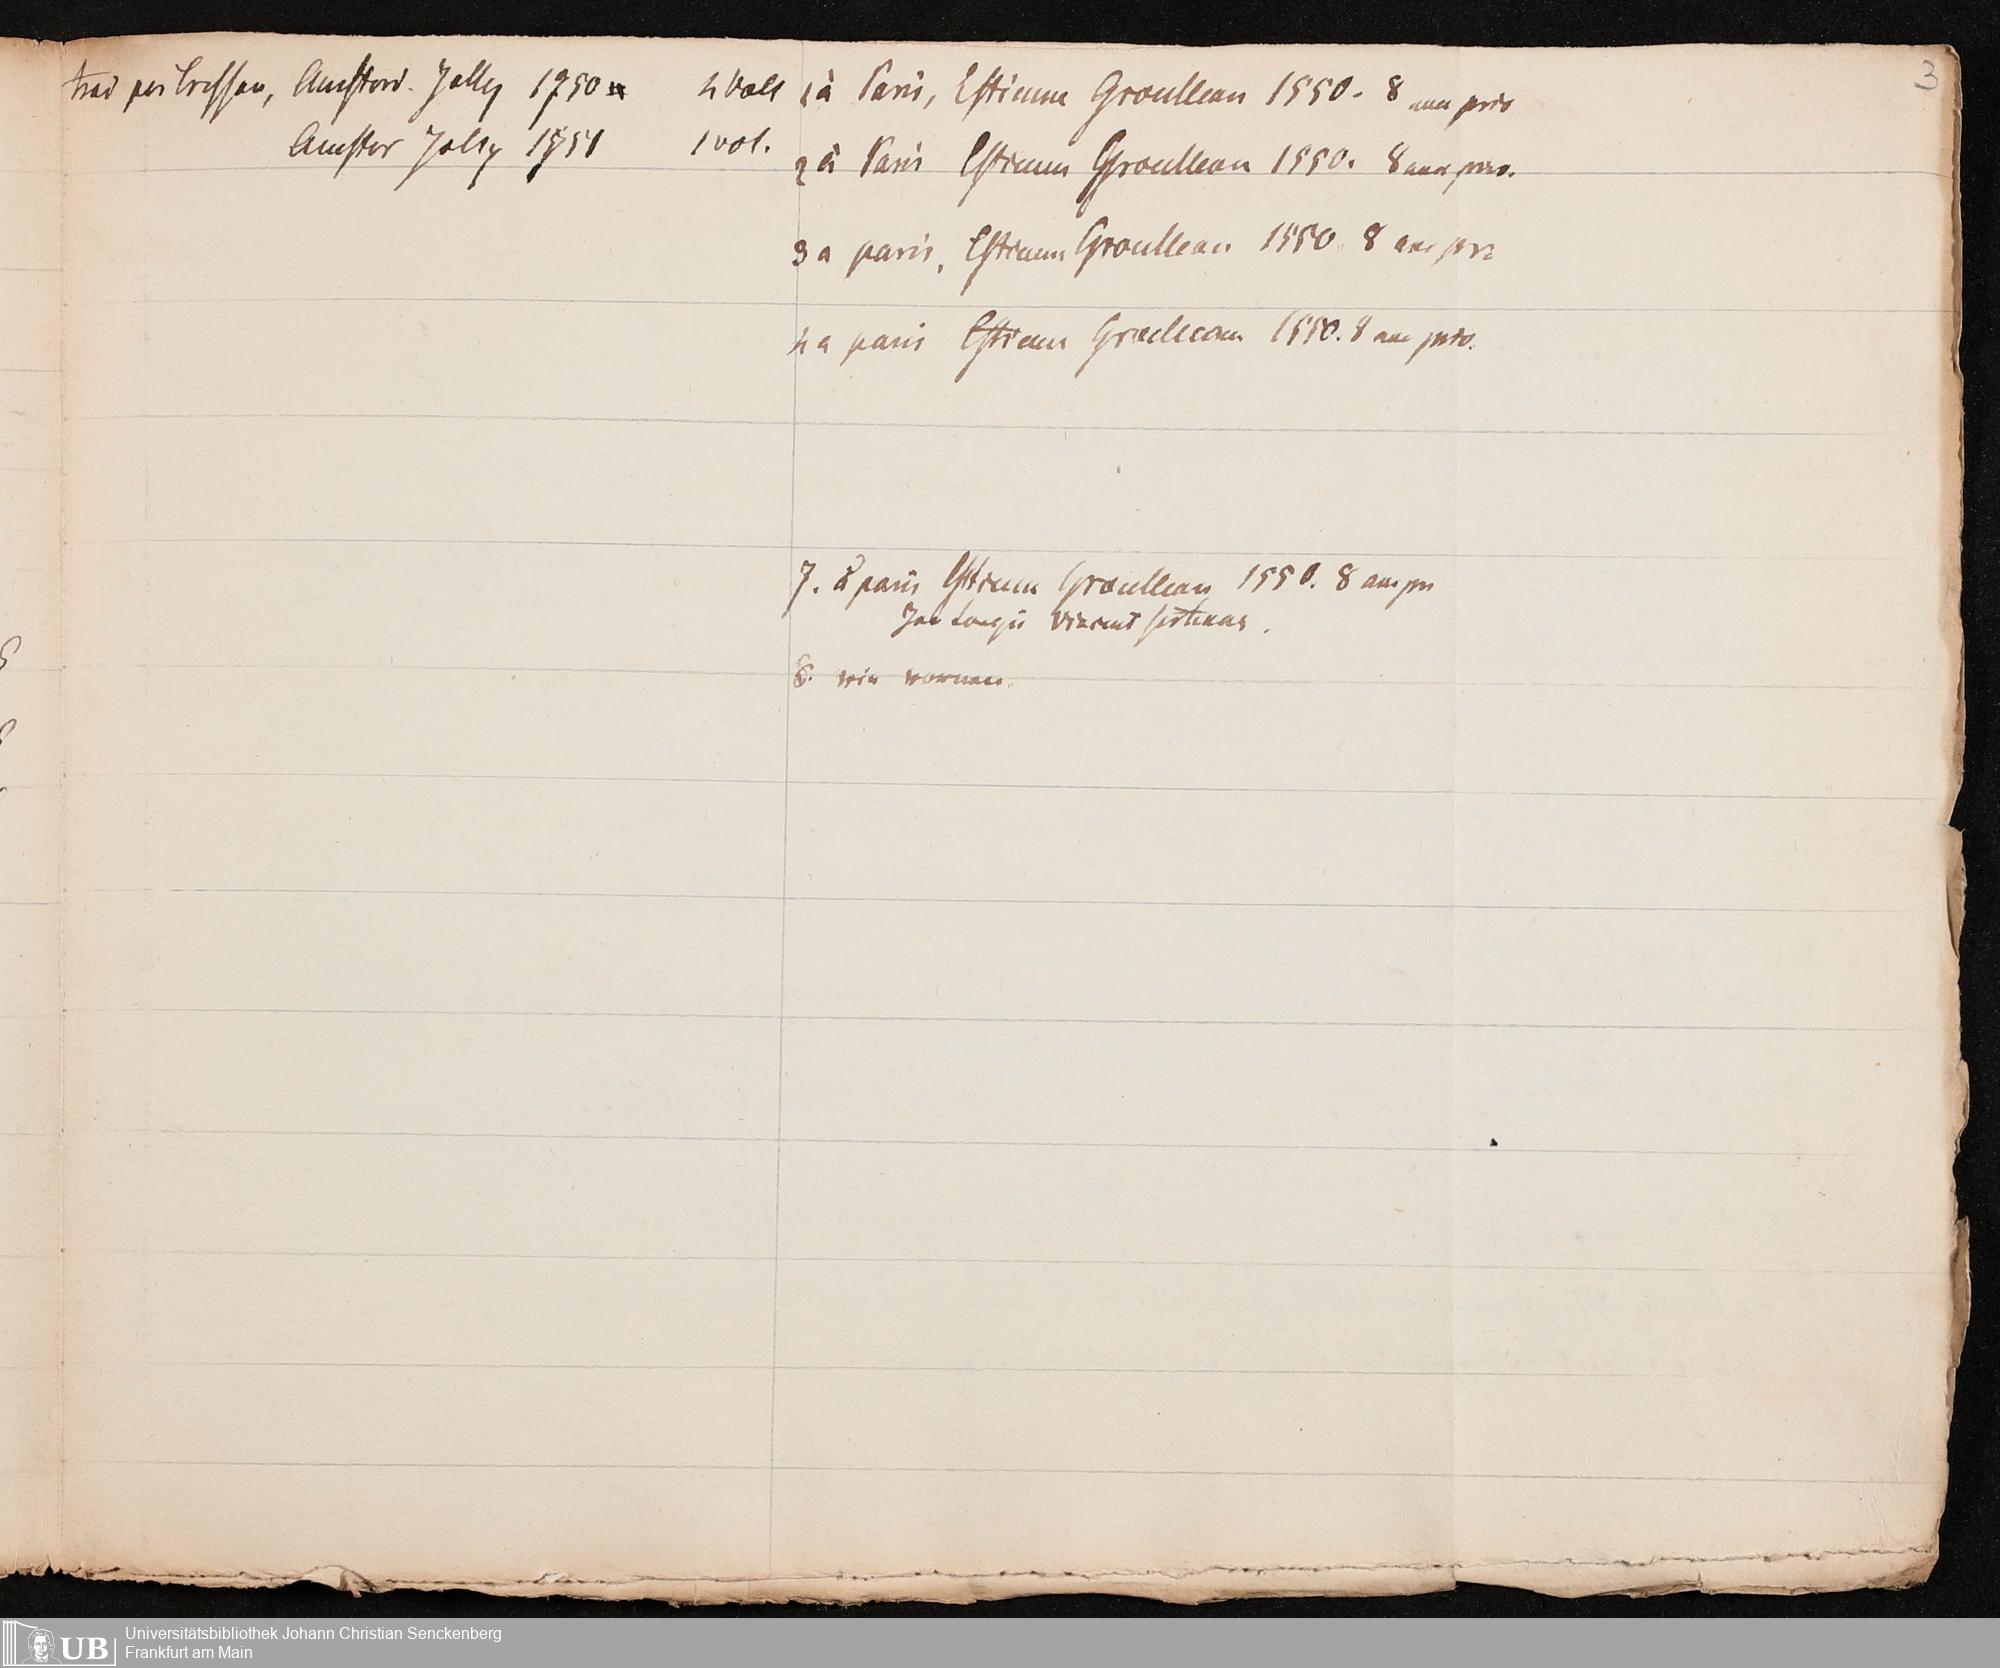 trad par Amsterd. Jolly 1750 4 Voll
Amster Jolly 1751 1 vol.
3
1 à Paris, Estienne Groulleau 1550. 8 avec priv
2 à Paris Estienne Groulleau 1550. 8 avec priv.
3 a paris, Estienne Groulleau 1550 8 avec priv
4 a paris Estienne Groulleau 1550. 8 avec priv.
7. à paris Estienne Groulleau 1550. 8 avec pri
Jan Longis Vincent Sertenas.
8. wie vornen.
Universitätsbibliothek Johann Christian Senckenberg
Frankfurt am Main
UB